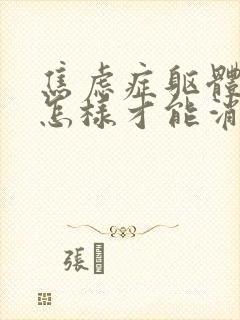 焦虑症躯體
怎樣才能消
張